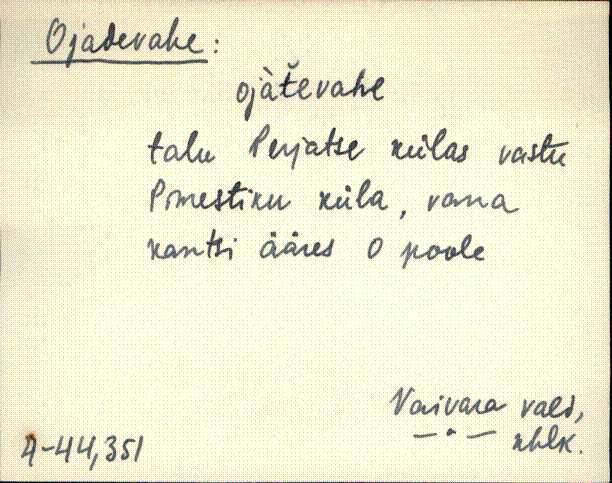 Ojadevahe:
ojàťevahe
talu Perjatse külas vastu
Pimestiku küla, vana
kantsi ääres O poole
Vaivara vald,
—"— khlk.
A-44,351